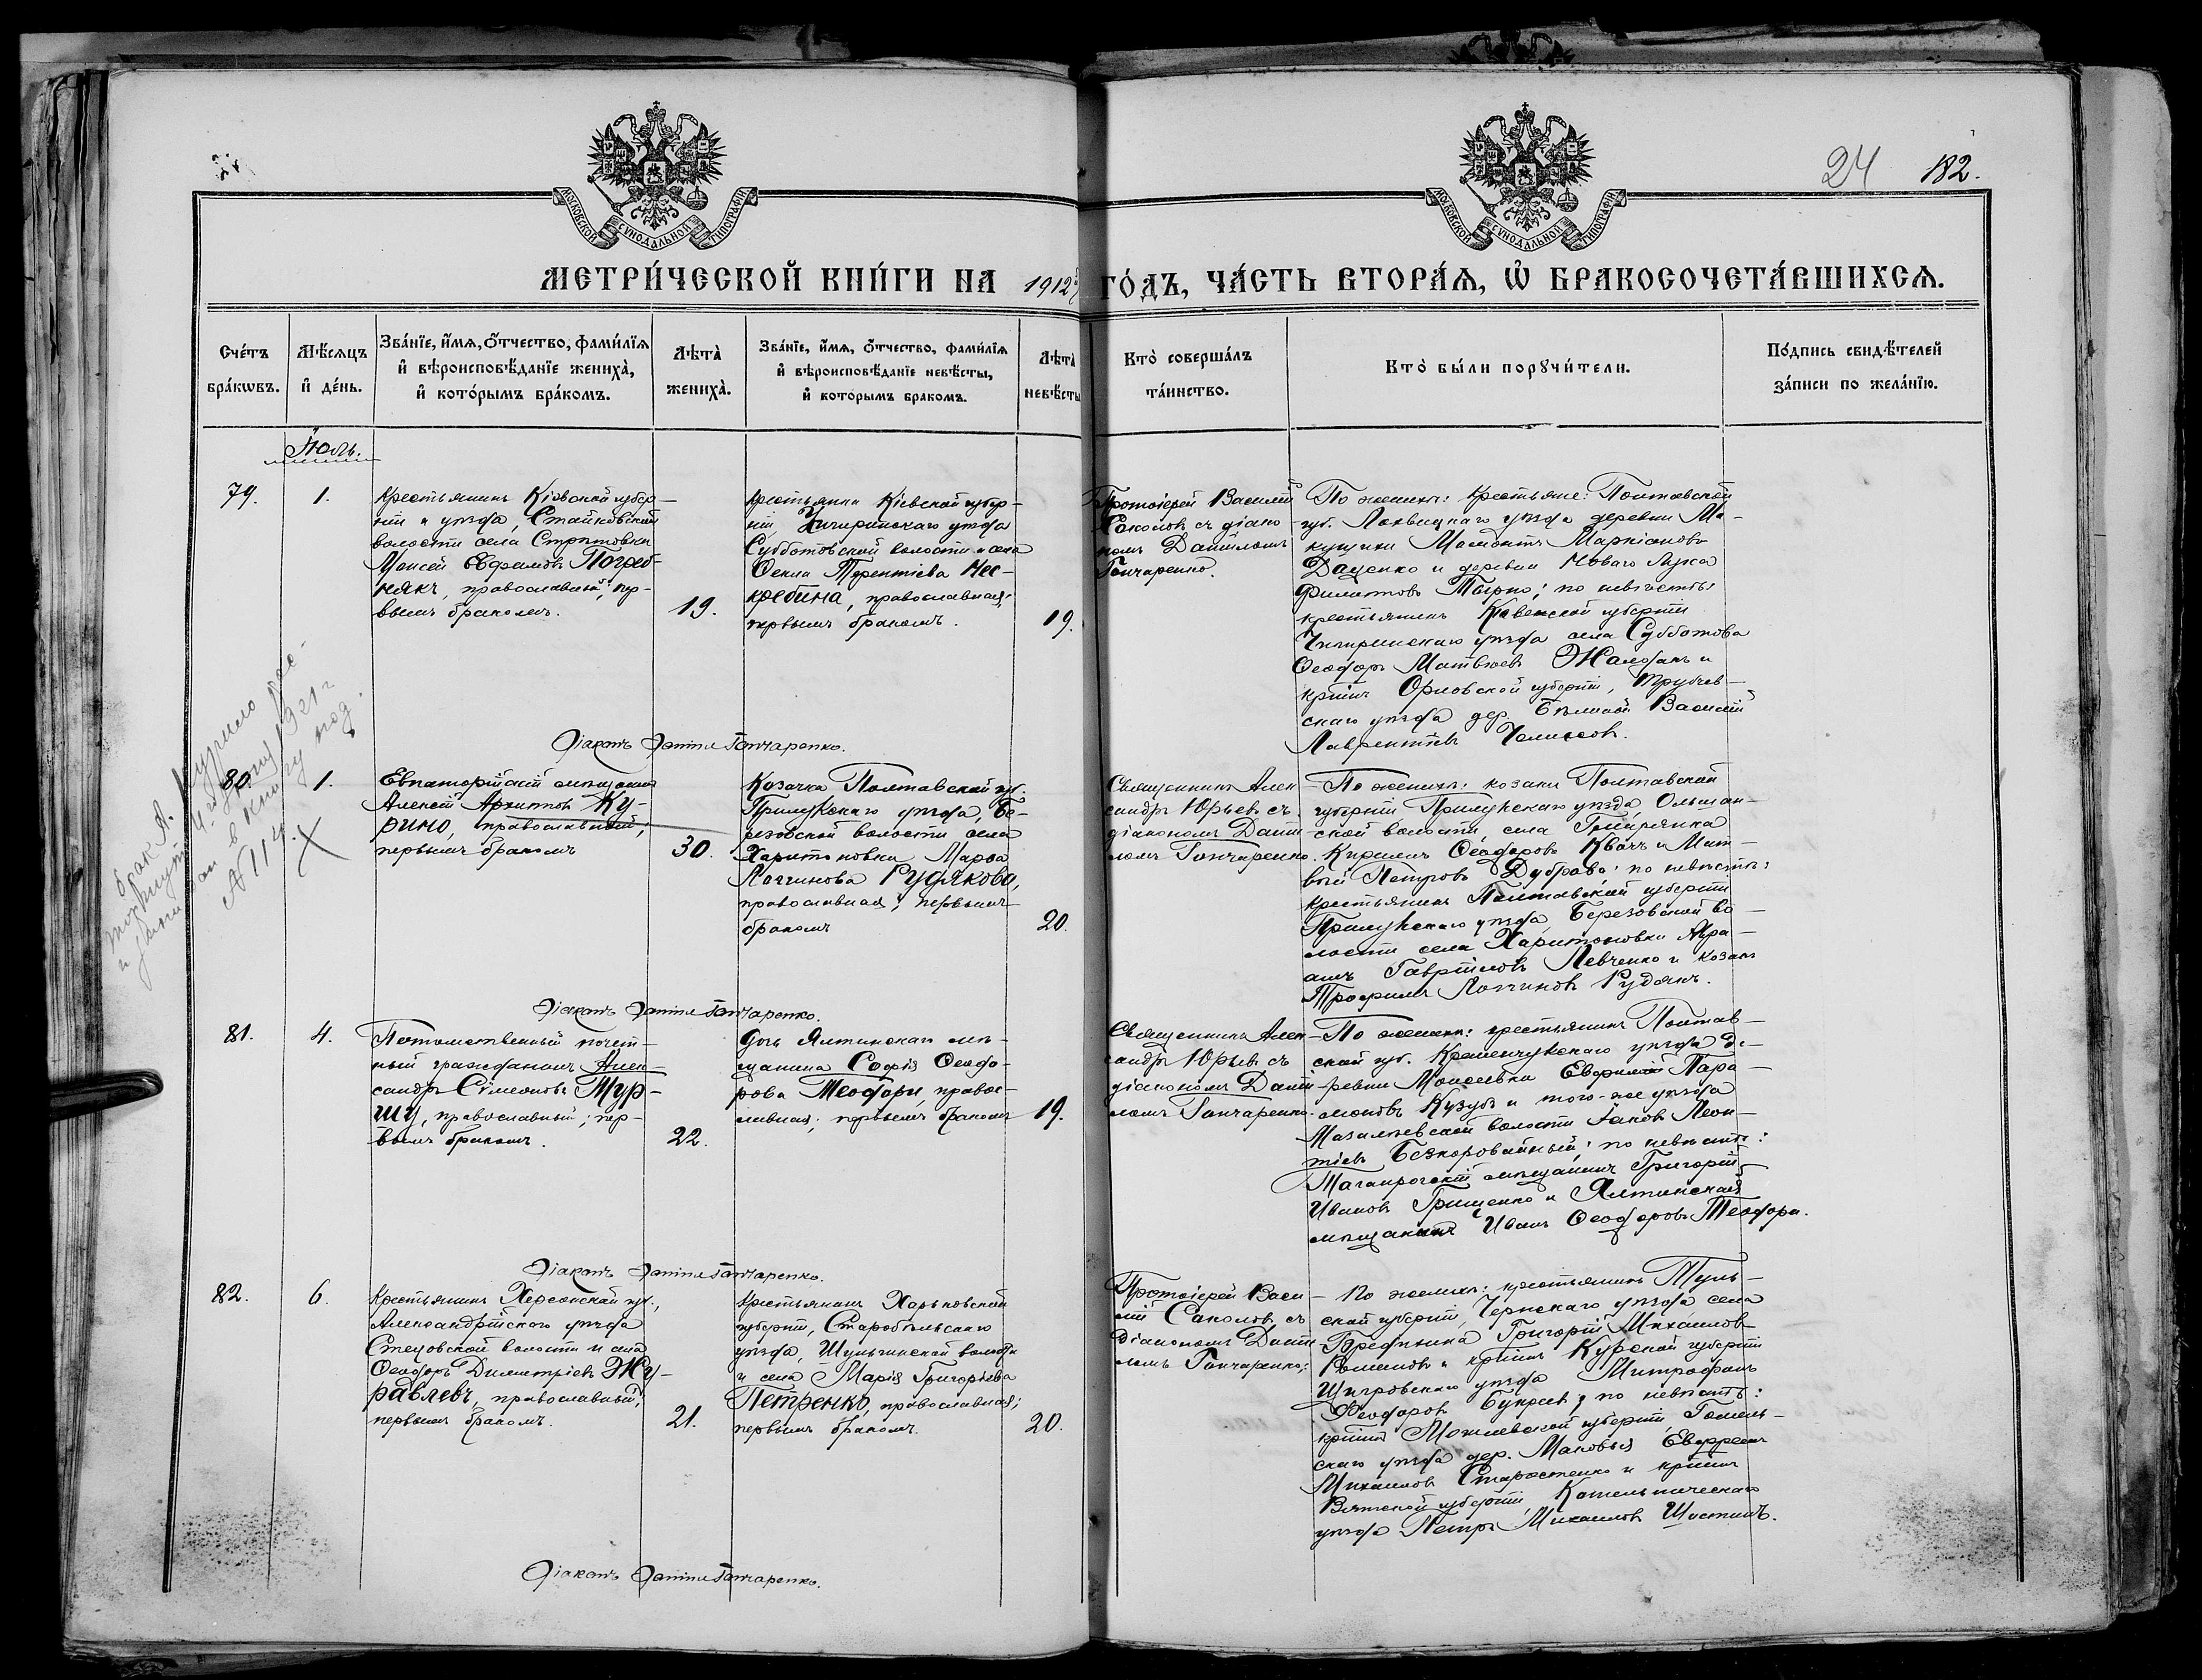 24 182.
МОСКОВСКОЙ СУНОДАЛЬНОЙ ТИПОГРАФІИ
МОСКОВСКОЙ СУНОДАЛЬНОЙ ТИПОГРАФІИ
МЕТРИ́ЧЕСКОЙ КНИ́ГИ НА 1912 ГО́ДЪ, ЧА́СТЬ ВТОРА́Ѧ, Ѽ БРАКОСОЧЕТА́ВШИХСѦ.
Счéтъ
брáкѡвъ.
Мѣ́сяцъ
и҆ дéнь.
Звáнїе, и҆́мѧ, о҆́тчество, фами́лїѧ
и҆ вѣроисповѣ́данїе женихà,
и҆ кото́рымъ брáкомъ.
Лѣтà
женихà.
Звáнїе, и҆́мѧ, о҆́тчество, фами́лїѧ
и҆ вѣроисповѣ́данїе невѣ́сты,
и҆ кото́рымъ бракомъ.
Лѣтà
невѣ́сты
Ктò совершáлъ
тáинство.
Ктò бы́ли порꙋчи́тели.
По́дпись свидѣ́телей
зáписи по желáнїю.
Іюль.
79.
1.
Крестьянинъ Кіевской губер-
ніи и уѣзда, Стайковской
волости села Стритовки
Моисей Ефремовъ Погреб-
някъ, православный, пер-
вымъ бракомъ.
19.
крестьянка Кіевской губер-
ніи, Чигиринскаго уѣзда
Субботовской волости и села
Ѳекла Терентіева Нес-
кребина, православная;
первымъ бракомъ.
19.
Протоіерей Василій
Соколовъ съ діако
номъ Даніиломъ
Гончаренко.
По женихѣ: крестьяне: Полтавской
губ. Лохвицкаго уѣзда деревни
Даценко и деревни
Филиповъ по невѣстѣ:
крестьянинъ Кіевской губерніи
Чигиринскаго уѣзда села Субботова
Ѳеодоръ Матвѣевъ и
кр-нинъ Орловской губерніи, Трубчев-
скаго уѣзда дер. Василій
Лаврентіевъ
Діаконъ Даніилъ Гончаренко.
80.
1.
Евпаторійскій мѣщанинъ
Алексѣй Архиповъ Ку-
рило, православный;
первымъ бракомъ
30.
Козачка Полтавской губ.
Прилукскаго уѣзда, Бе-
резовской волости села
Харитоновки Марѳа
Логгинова Рудякова,
православная; первымъ
бракомъ
20.
Священникъ Алек
сандръ Юрьевъ съ
діакономъ Дании-
ломъ Гончаренко.
По женихѣ: козаки Полтавской
губерніи Прилукскаго уѣзда, Ольшан-
ской волости, села
Кириллъ Ѳеодоровъ Квачъ и Мат-
вѣй Петровъ Дуброва; по невѣстѣ:
крестьянинъ Полтавской губерніи
Прилукскаго уѣзда, Березовской во-
лости села Харитоновки Авра-
амъ Гавріиловъ Левченко и козакъ
Трофимъ Логгиновъ Рудякъ.
Брак А. Курило рас-
торгнут 1921 г
и в книгу под
№ 114.
Діаконъ Даніилъ Гончаренко.
81.
4.
Потомственный почет-
ный гражданинъ Алек-
сандръ Сѵмеоновъ Мур-
шу, православный; пер-
вымъ бракомъ.
22.
Дочь Ялтинскаго мѣ-
щанина Софія Ѳеодо-
рова Теодори, право-
славная; первымъ бракомъ
19.
Священникъ Алек-
сандръ Юрьевъ съ
діакономъ Дании-
ломъ Гончаренко.
По женихѣ: крестьянинъ Полтав-
ской губ. Кременчукскаго уѣзда де-
ревни Моисеевки Евфимій Пара-
моновъ Кузубъ и того-же уѣзда
волости Іаковъ Леон-
тіевъ Безкоровайный; по невѣстѣ:
Таганрогскій мѣщанинъ Григорій
Ивановъ Грищенко и Ялтинскій
мѣщанинъ Иванъ Ѳеодоровъ Теодори.
Діаконъ Даніилъ Гончаренко.
82.
6.
Крестьянинъ Херсонской губ.,
Александрійскаго уѣзда
Стецовской волости и села
Ѳеодоръ Димитріевъ Жу-
равлевъ, православный;
первымъ бракомъ.
21.
Крестьянка Харьковской
губерніи, Старобѣльскаго
уѣзда, Шульгинской волости
и села Марія Григорьева
Петренко, православная;
первымъ бракомъ.
20.
Протоіерей Васи-
лій Соколовъ съ
діакономъ Дании-
ломъ Гончаренко;
По женихѣ: крестьянинъ Туль-
ской губерніи, Чернскаго уѣзда села
Григорій Михаиловъ
и кр-нинъ Курской губерніи
Щигровскаго уѣзда Митрофанъ
Ѳеодоровъ по невѣстѣ:
кр-нинъ Могилевской губерніи, Гомель-
скаго уѣзда дер. Ефремъ
Михаиловъ Старостенко и кр-нинъ
Вятской губерніи, Котельническаго
уѣзда Петръ Михаиловъ
Діаконъ Даніилъ Гончаренко.